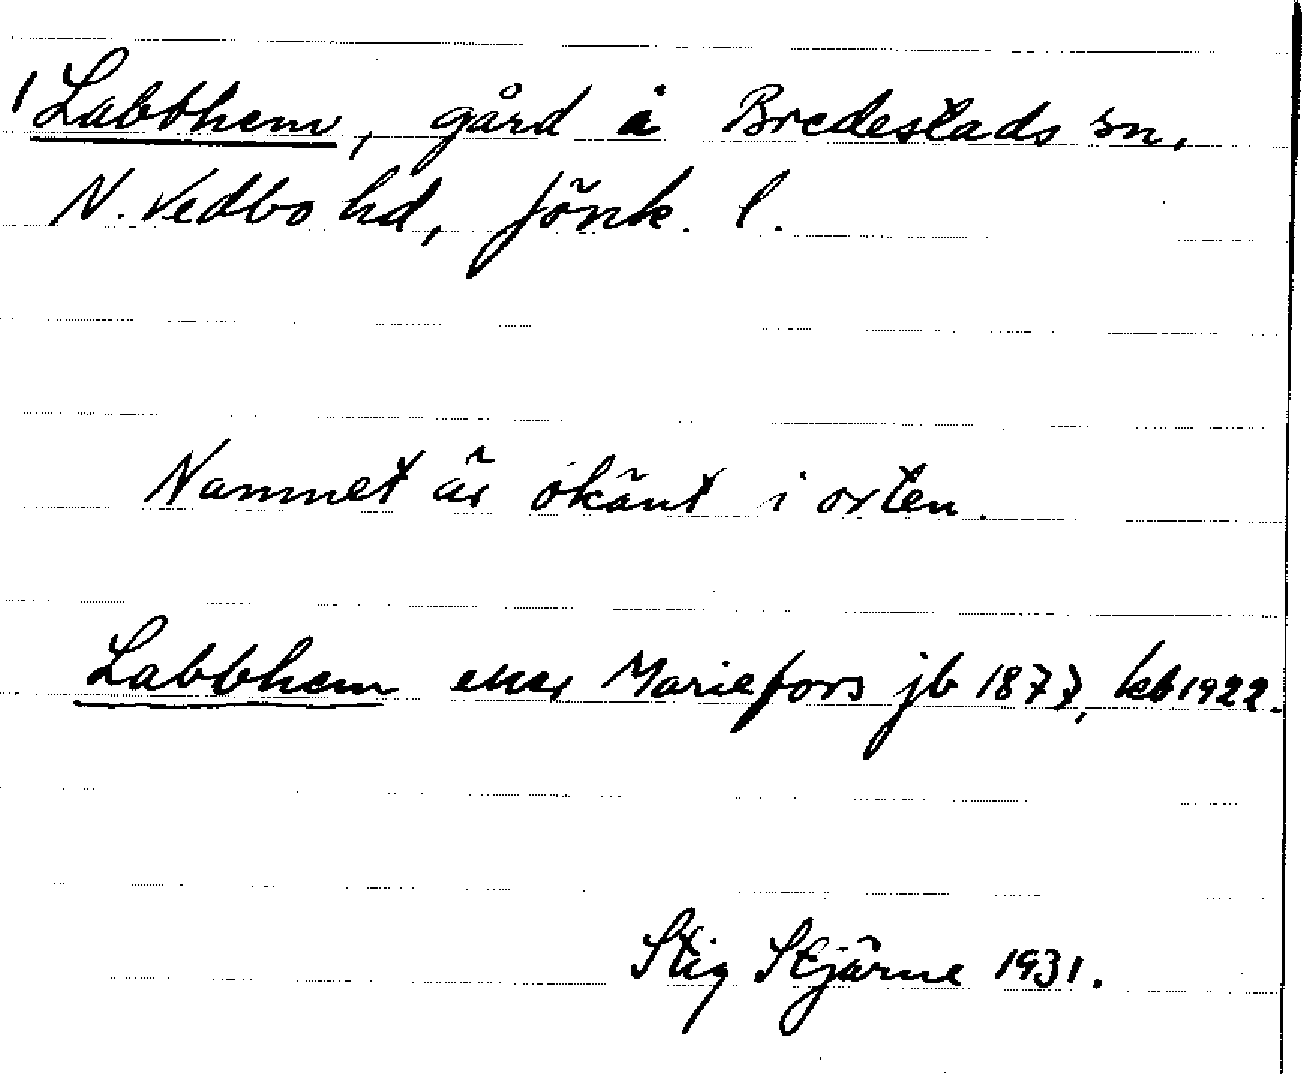 /Labbhem, gård i Bredestads sn,
N. Vedbo hd, Jönk. l.
Namnet är okänt i orten.
Labbhem eller Mariefors jb 1877, kb 1922.
Stig Stjärne 1931.